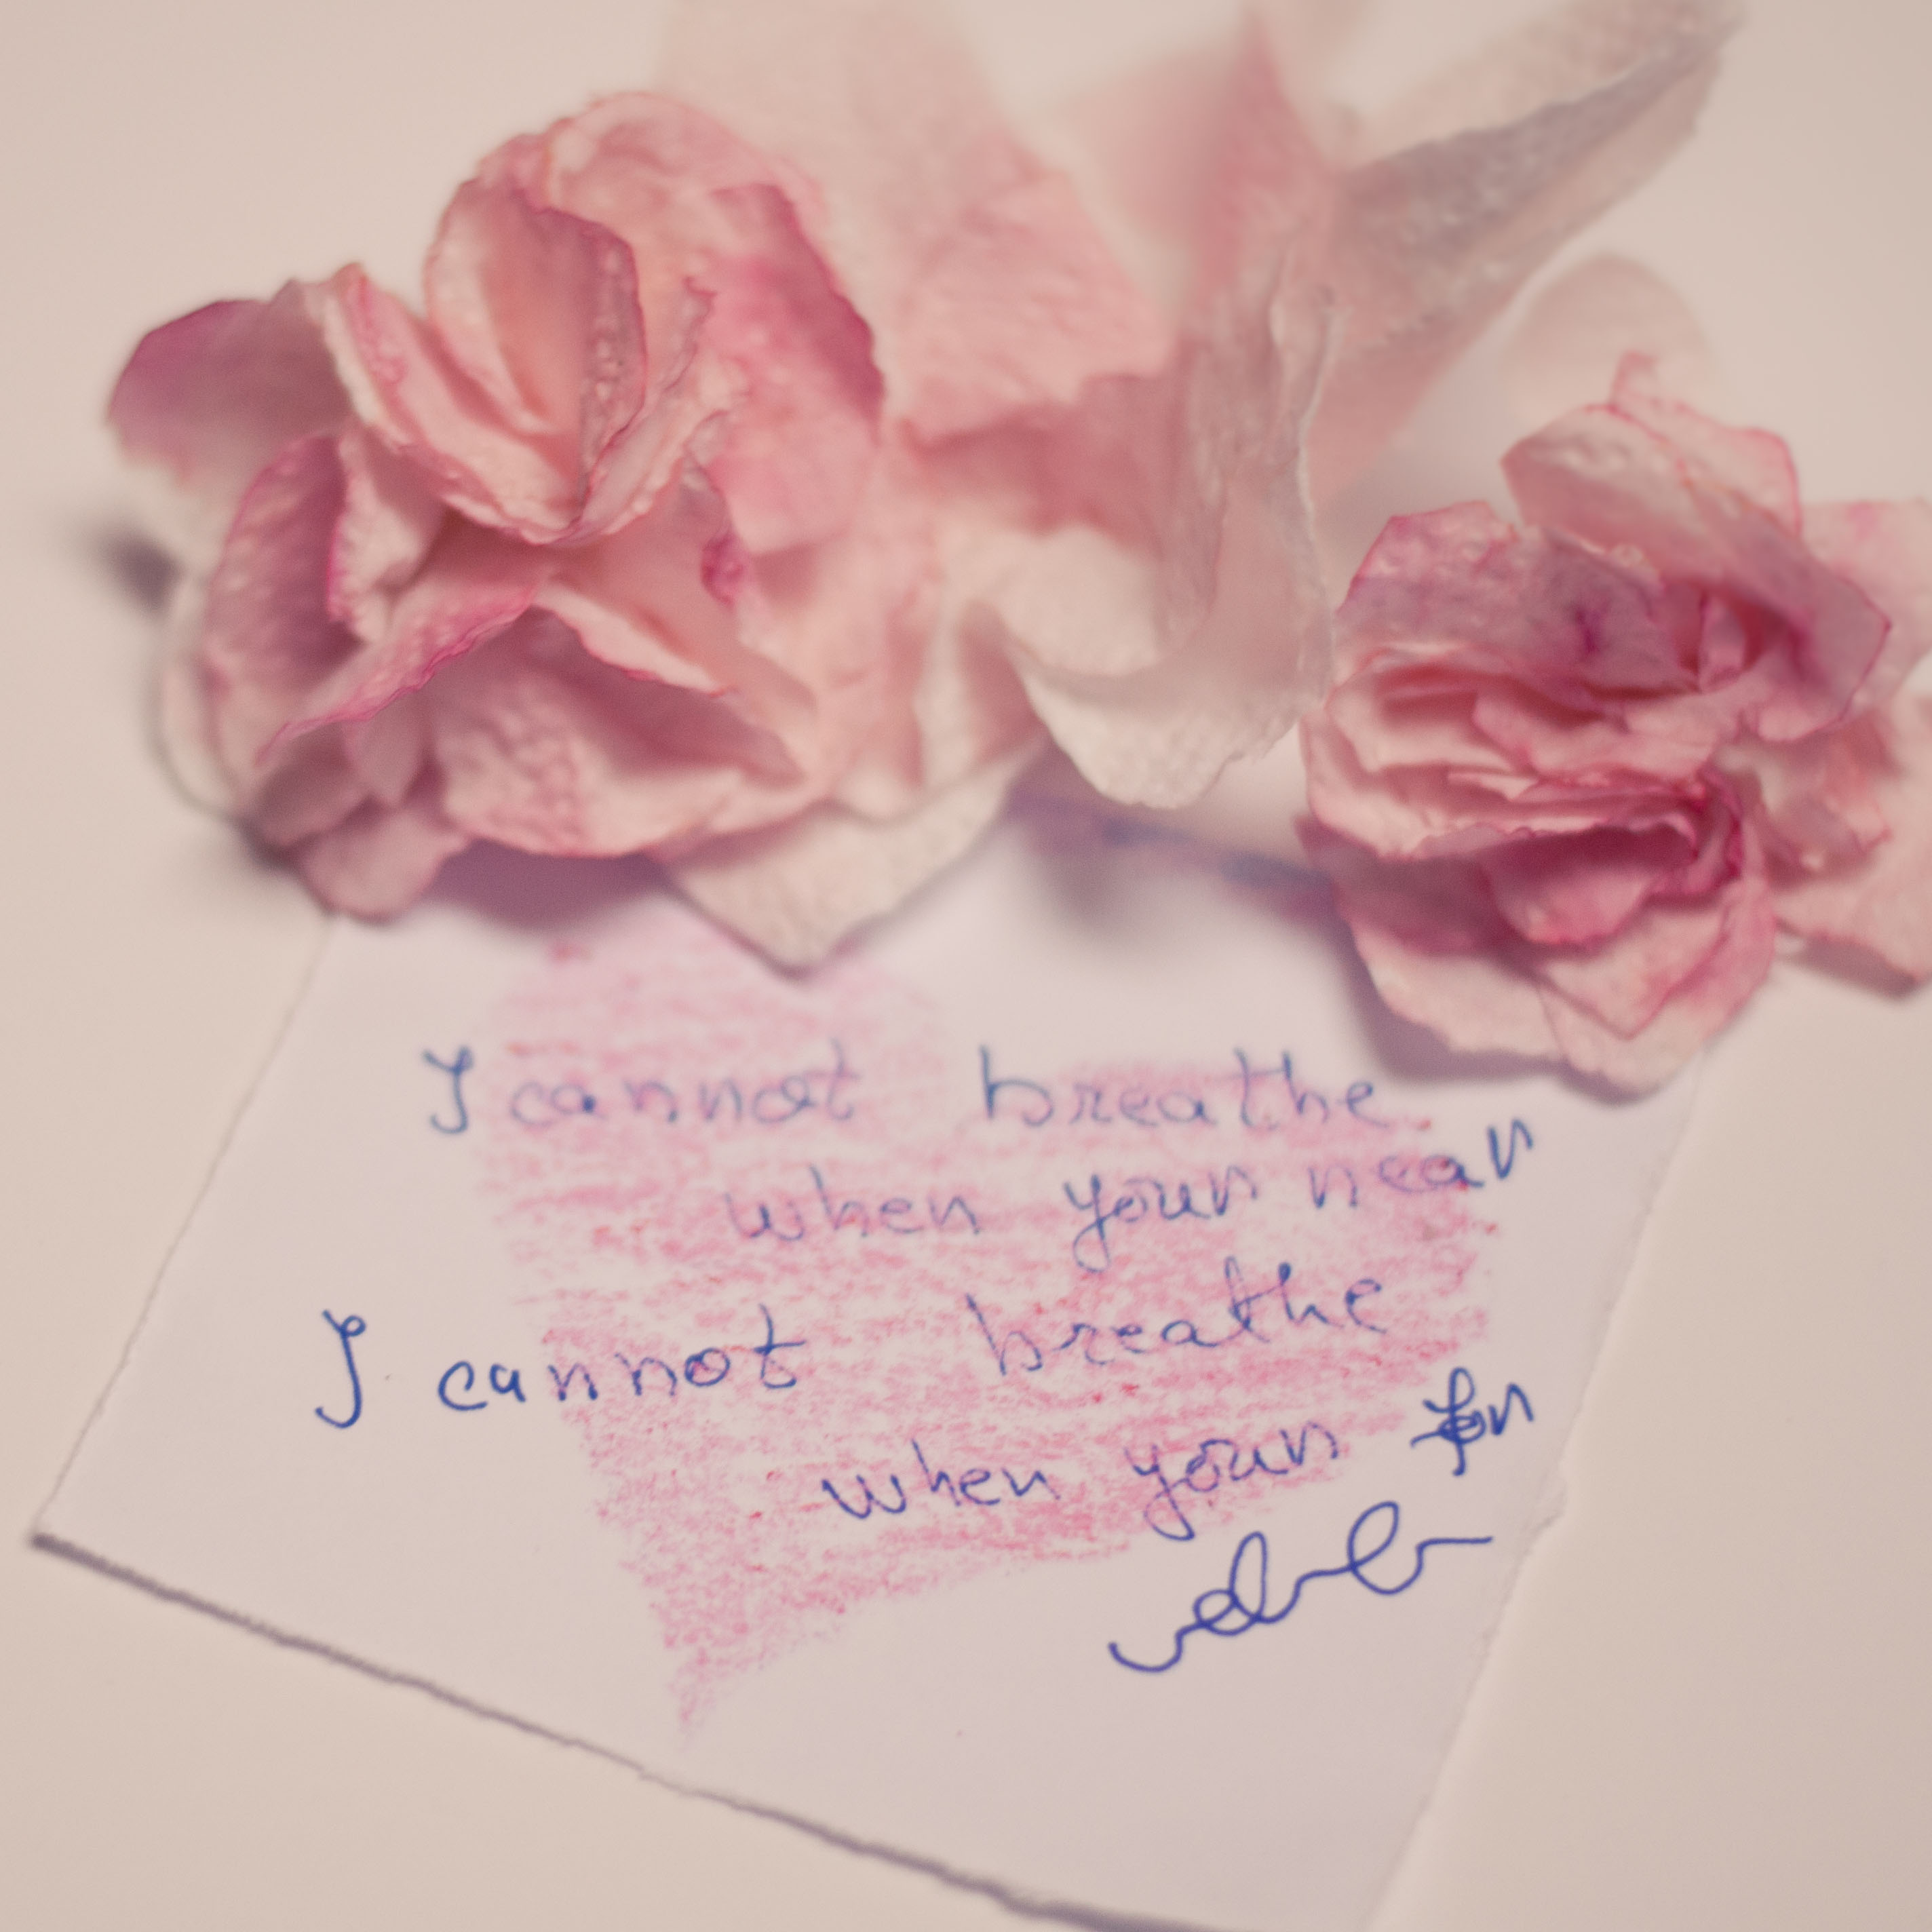 I cannot breathe
when your near
I cannot breathe
when your